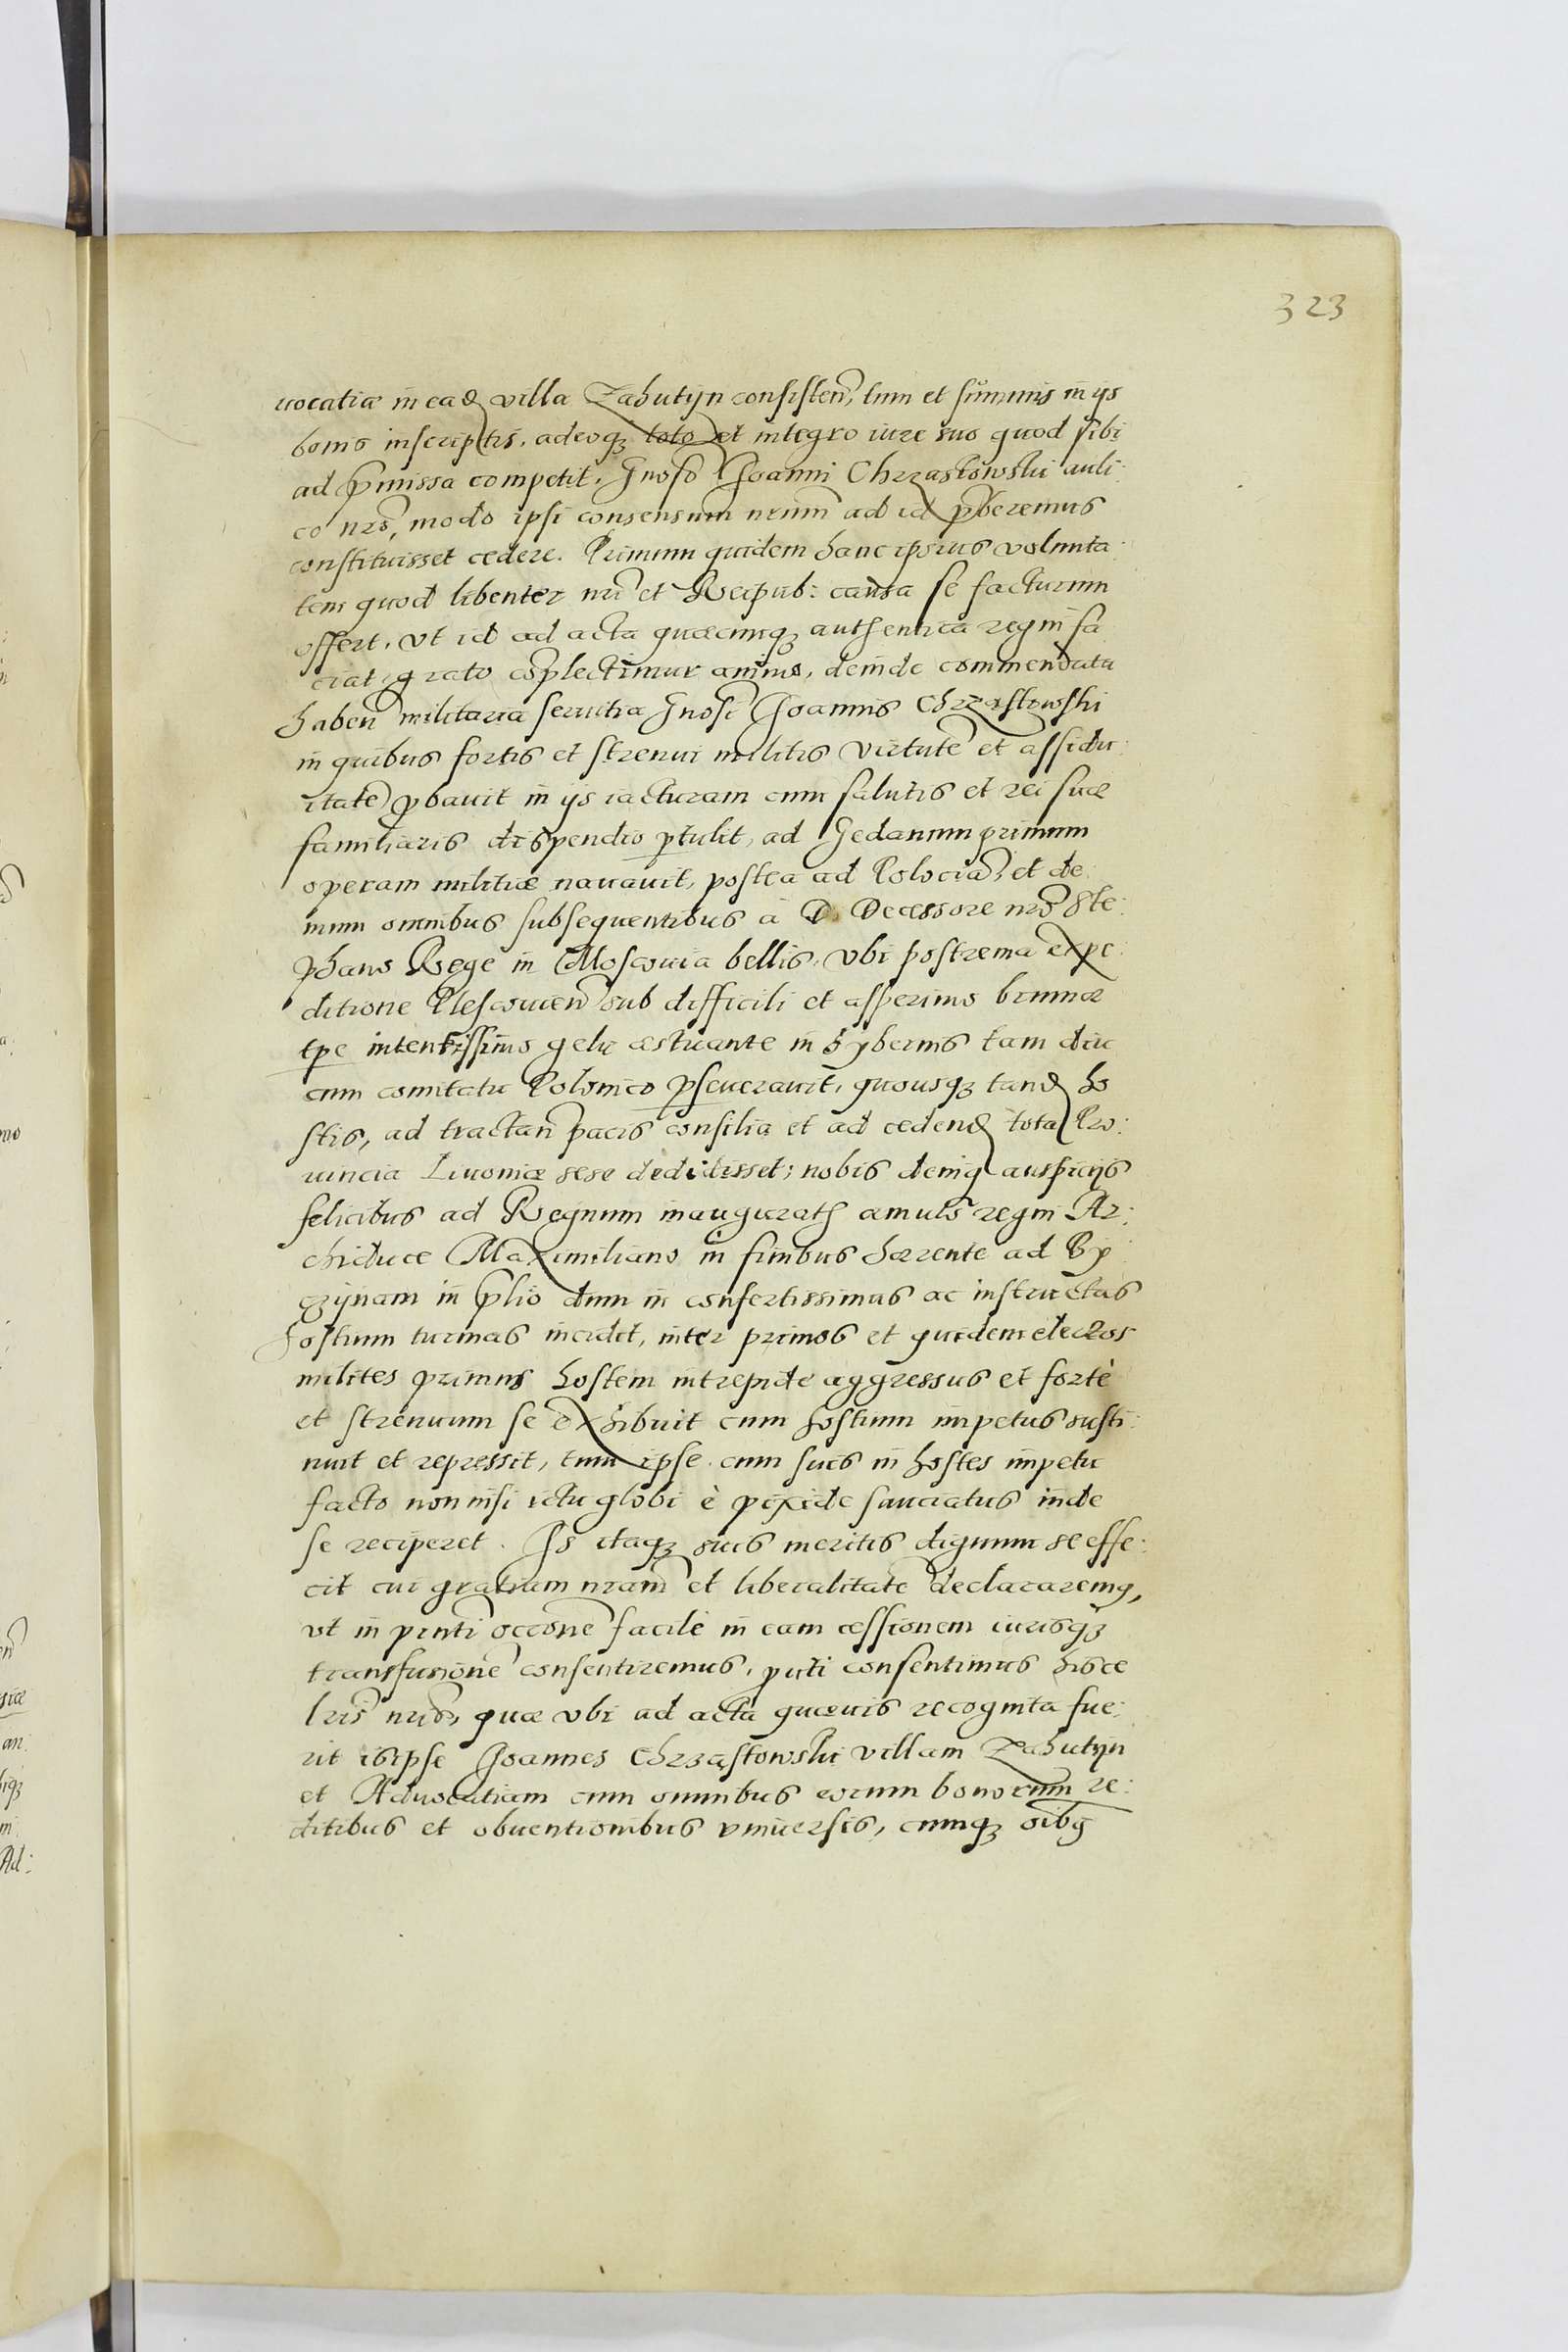 323
uocatiæ in ead villa Zahutÿn consisten, tum et sum̃mis in ijs
bonis inscriptis. adeoq toto et integro iure suo quod sibi
ad pmissa competit. Gnoso Joanni Chrzastowski auli:
co nro, modo ipsi consensum nrum ad id pberemus
constituisset cedere. Primum quidem hanc ipsius volunta:
tem quod libenter nri et Reipub: causa se facturum
offert, vt id ad acta quæcunq authentica regni fa
ciat grato coplectimur animo, deinde commendata
haben militaria seruitia Gnosi Joannis Chrzastowski
in quibus fortis et strenui militis virtute et assidu:
itate pbauit in ijs iacturam cum salutis et rei suæ
familiaris dispendio ptulit, ad Gedanum primum
operam militiæ nauauit, postea ad Polocia, et de
mum omnibus subsequentibus a D. Decessore nro Ste:
phano Rege in Moscouia bellis, vbi postrema expe:
ditione Plescouien sub difficili et asperimo brumæ
tpe intentissimo gelu æstuante in hybernis tam diu
cum comitatu Polonico pseuerauit, quousq tand ho
stis, ad tractan pacis consilia et ad cedend tota Pro:
uincia Liuoniæ sese dedidisset; nobis deniq auspicijs
felicibus ad Regnum inauguratis æmulo regni Ar:
chiduce Maximiliano in finibus hærente ad By
czÿnam in plio dum in confertissimas ac instructas
hostium turmas incidit, inter primos et quidem electos
milites primus hostem intrepide aggressus et forte
et strenuum se exhibuit cum hostium impetus susti:
nuit et repressit, tum ipse cum suis in hostes impetu
facto non nisi ictu globi è pixide sauciatus inde
se reciperet. Is itaq suis meritis dignum se effe:
cit cui gratiam nram et liberalitate declararemq,
vt in pnti occone facile in eam cessionem iurisq
transfusione consentiremus, puti consentimus hisce
lris nris, quæ vbi ad acta quæuis recognita fue:
rit is ipse Joannes Chrzastowski villam Zahutÿn
et Aduocatiam cum omnibus eorum bonorum re:
ditibus et obuentionibus vniuersis, cumq oibq